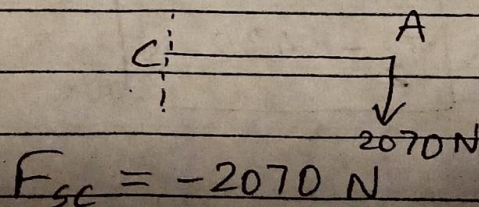 A
C
2070 N
F_SC = -2070 N